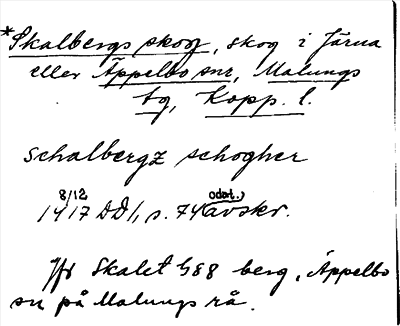 *Skalbergs skog, skog i Järna
eller Äppelbo snr, Malungs
tg, Kopp. l.
schalbergz schogher
8/12 odat.)
1417 DD 1, s. 74 avskr.
Jfr Skalet 488 berg, Äppelbo
sn på Malungs rå.